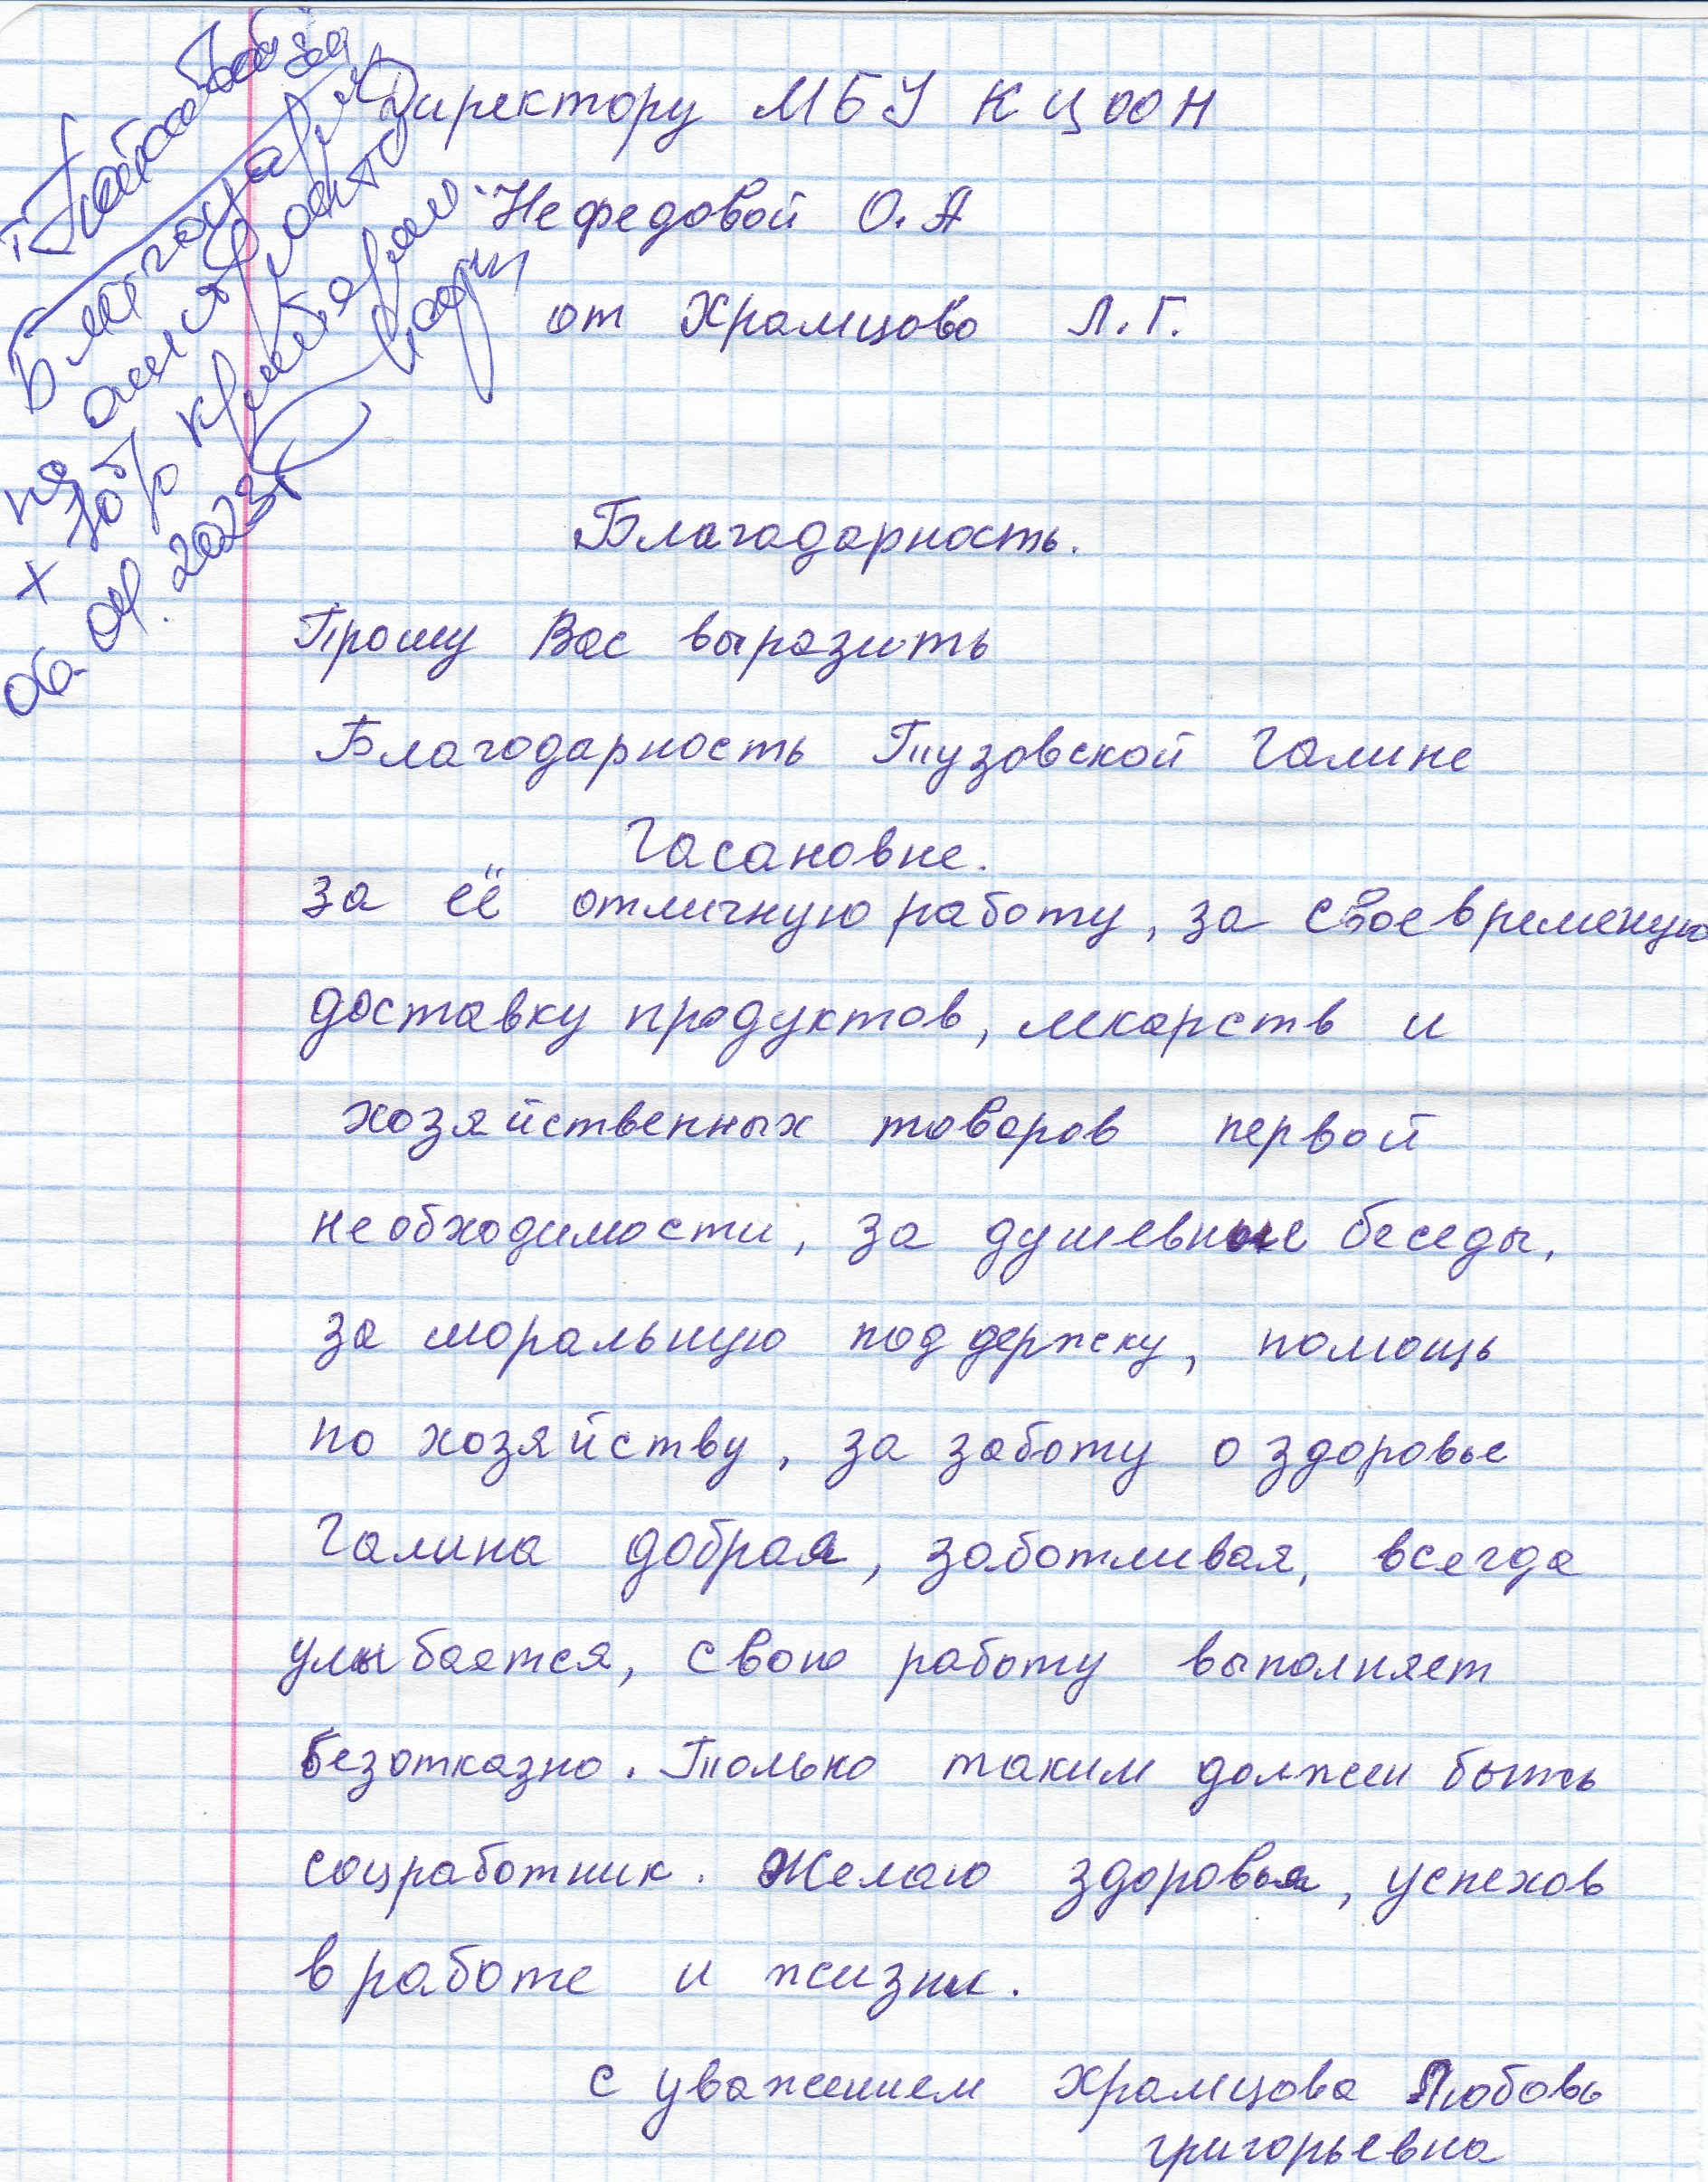 Директору МБУ КЦООН
Нефедовой О.А
от Храмцово Л.Г.
Благодарность.
Прошу Вас выразить
Благодарность Тузовской Галине
Гасановне.
за её отличную работу, за своевременую
доставку продуктов, лекарств и
хозяйственных товаров первой
необходимости, за душевные беседы,
за моральную поддержку, помощь
по хозяйству, за заботу о здоровье
Галина добрая, заботливая, всегда
улыбается, свою работу выполняет
безотказно. Только таким должен быть
соцработник. Желаю здоровья, успехов
в работе и жизни.
с уважением Храмцова Любовь
григорьевна
на
06. 04. 2023г